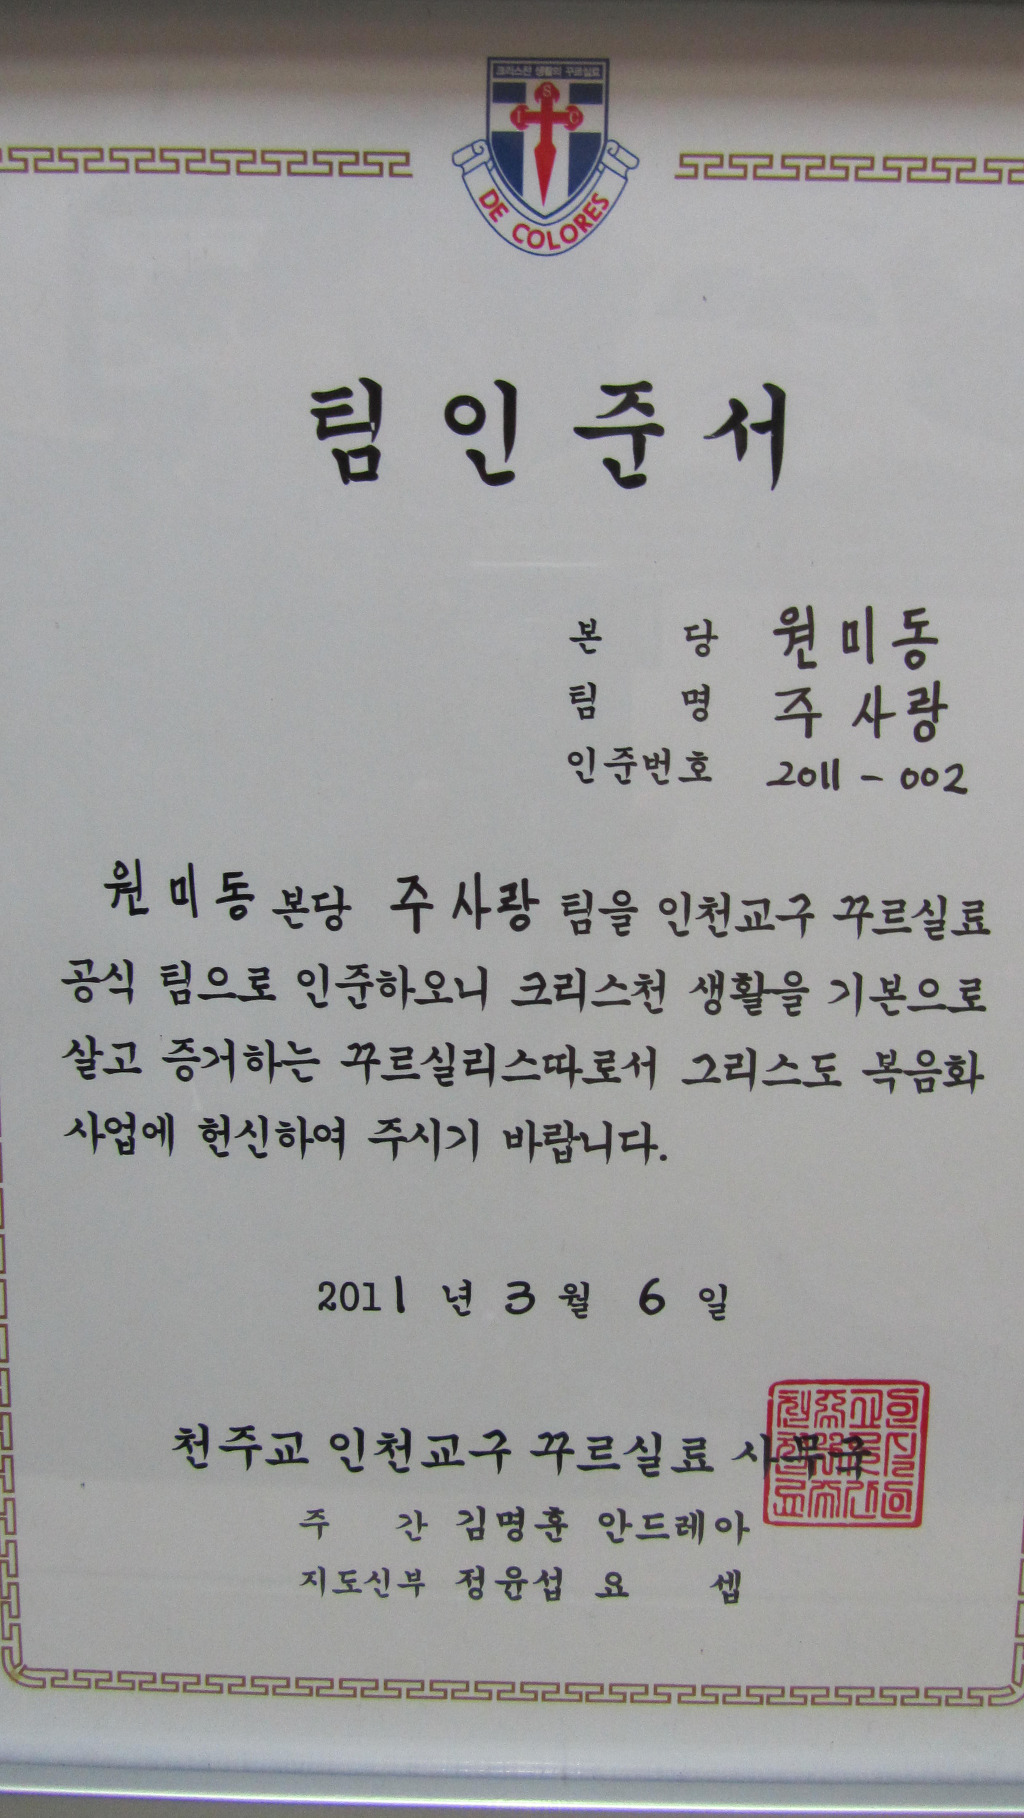 크리스천 생활의 꾸르실료
S
I C
DE COLORES
팀 인 준 서
본 당 원미동
팀 명 주 사랑
인준번호 2011 - 002
원미동 본당 주 사랑 팀을 인천교구 꾸르실료
공식 팀으로 인준하오니 크리스천 생활을 기본으로
살고 증거하는 꾸르실리스따로서 그리스도 복음화
사업에 헌신하여 주시기 바랍니다.
2011 년 3 월 6 일
천주교 인천교구 꾸르실료 사무국
주 간 김명훈 안드레아
지도신부 정윤섭 요 셉